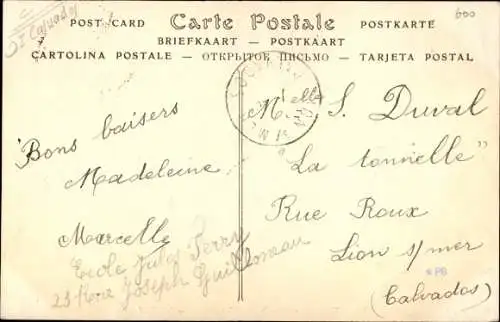 Calvados
600
POST CARD Carte Postale POSTKARTE
BRIEFKAART — POSTKAART
CARTOLINA POSTALE — ОТКРЫТОЕ ПИСЬМО — TARJETA POSTAL
Bons baisers
Madeleine
Marcelle
Ecole Jules Ferry
23 Rue Joseph Guillonneau
Melle S. Duval
"La tonnelle"
Rue Roux
Lion s/mer
(Calvados)